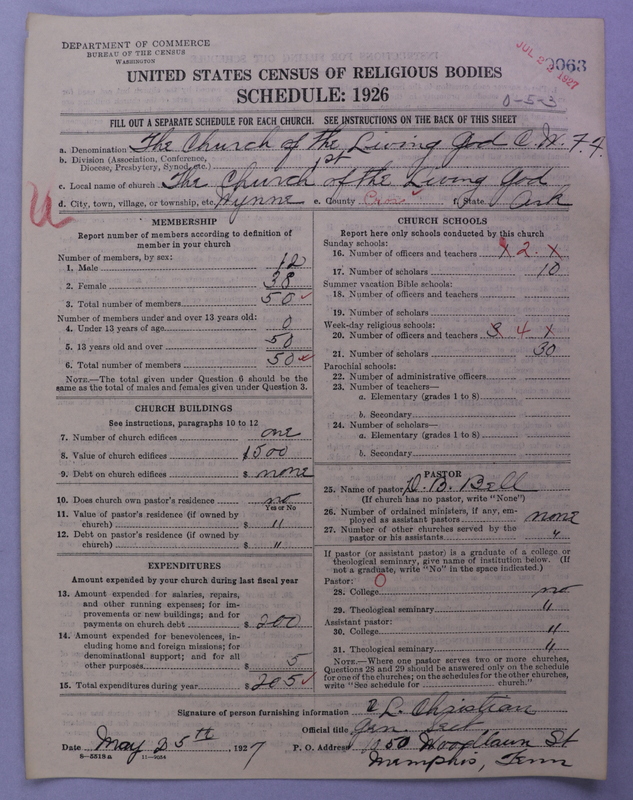 DEPARTMENT OF COMMERCE
BUREAU OF THE CENSUS
WASHINGTON
JUL 2 1927
9063
UNITED STATES CENSUS OF RELIGIOUS BODIES
SCHEDULE: 1926
0-5-3
FILL OUT A SEPARATE SCHEDULE FOR EACH CHURCH. SEE INSTRUCTIONS ON THE BACK OF THIS SHEET
a. Denomination The Church of the Living God C.W.F.F.
b. Division (Association, Conference, Diocese, Presbytery, Synod, etc.) 1st
c. Local name of church The Church of the Living God
d. City, town, village, or township, etc. Wynne e. County Cross f. State Ark
MEMBERSHIP
Report number of members according to definition of
member in your church
Number of members, by sex:
1. Male 12
2. Female 38
3. Total number of members 50
Number of members under and over 13 years old:
4. Under 13 years of age 0
5. 13 years old and over 50
6. Total number of members 50
NOTE.—The total given under Question 6 should be
same as the total of males and females given under Question 3.
CHURCH BUILDINGS
See instructions, paragraphs 10 to 12
7. Number of church edifices one
8. Value of church edifices $500
9. Debt on church edifices $ none
10. Does church own pastor's residence no
Yes or No
11. Value of pastor's residence (if owned by
church) $ "
12. Debt on pastor's residence (if owned by
church) $ "
EXPENDITURES
Amount expended by your church during last fiscal year
13. Amount expended for salaries, repairs,
and other running expenses; for im-
provements or new buildings; and for
payments on church debt $ 200
14. Amount expended for benevolences, in-
cluding home and foreign missions; for
denominational support; and for all
other purposes $ 5
15. Total expenditures during year $ 205
CHURCH SCHOOLS
Report here only schools conducted by this church
Sunday schools:
16. Number of officers and teachers 2 x
17. Number of scholars 10
Summer vacation Bible schools:
18. Number of officers and teachers
19. Number of scholars
Week-day religious schools:
20. Number of officers and teachers 3 4 x
21. Number of scholars 30
Parochial schools:
22. Number of administrative officers
23. Number of teachers—
a. Elementary (grades 1 to 8)
b. Secondary
24. Number of scholars—
a. Elementary (grades 1 to 8)
b. Secondary
PASTOR
25. Name of pastor D. B. Bell
(If church has no pastor, write "None")
26. Number of ordained ministers, if any, em-
ployed as assistant pastors none
27. Number of other churches served by the
pastor or his assistants "
If pastor (or assistant pastor) is a graduate of a college or
theological seminary, give name of institution below. (If
not a graduate, write "No" in the space indicated.)
Pastor: 0
28. College no
29. Theological seminary "
Assistant pastor:
30. College "
31. Theological seminary "
NOTE.—Where one pastor serves two or more churches,
Questions 28 and 29 should be answered only on the schedule
for one of the churches; on the schedules for the other churches,
write "See schedule for church."
Signature of person furnishing information L. Christian
Official title Gen Sect
Date May 25th, 1927 P. O. Address 1250 Woodlawn St
8—5513a 11—9034 Memphis, Tenn